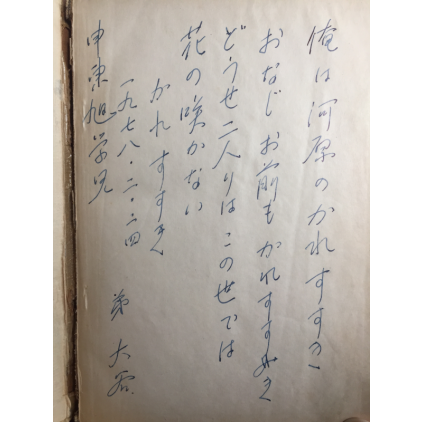 俺は河原のかれすすき
おなじお前もかれすすき
どうせ二人りはこの世では
花の咲かない
かれすすき
一九七八・二・二四
弟 大
申東旭学兄